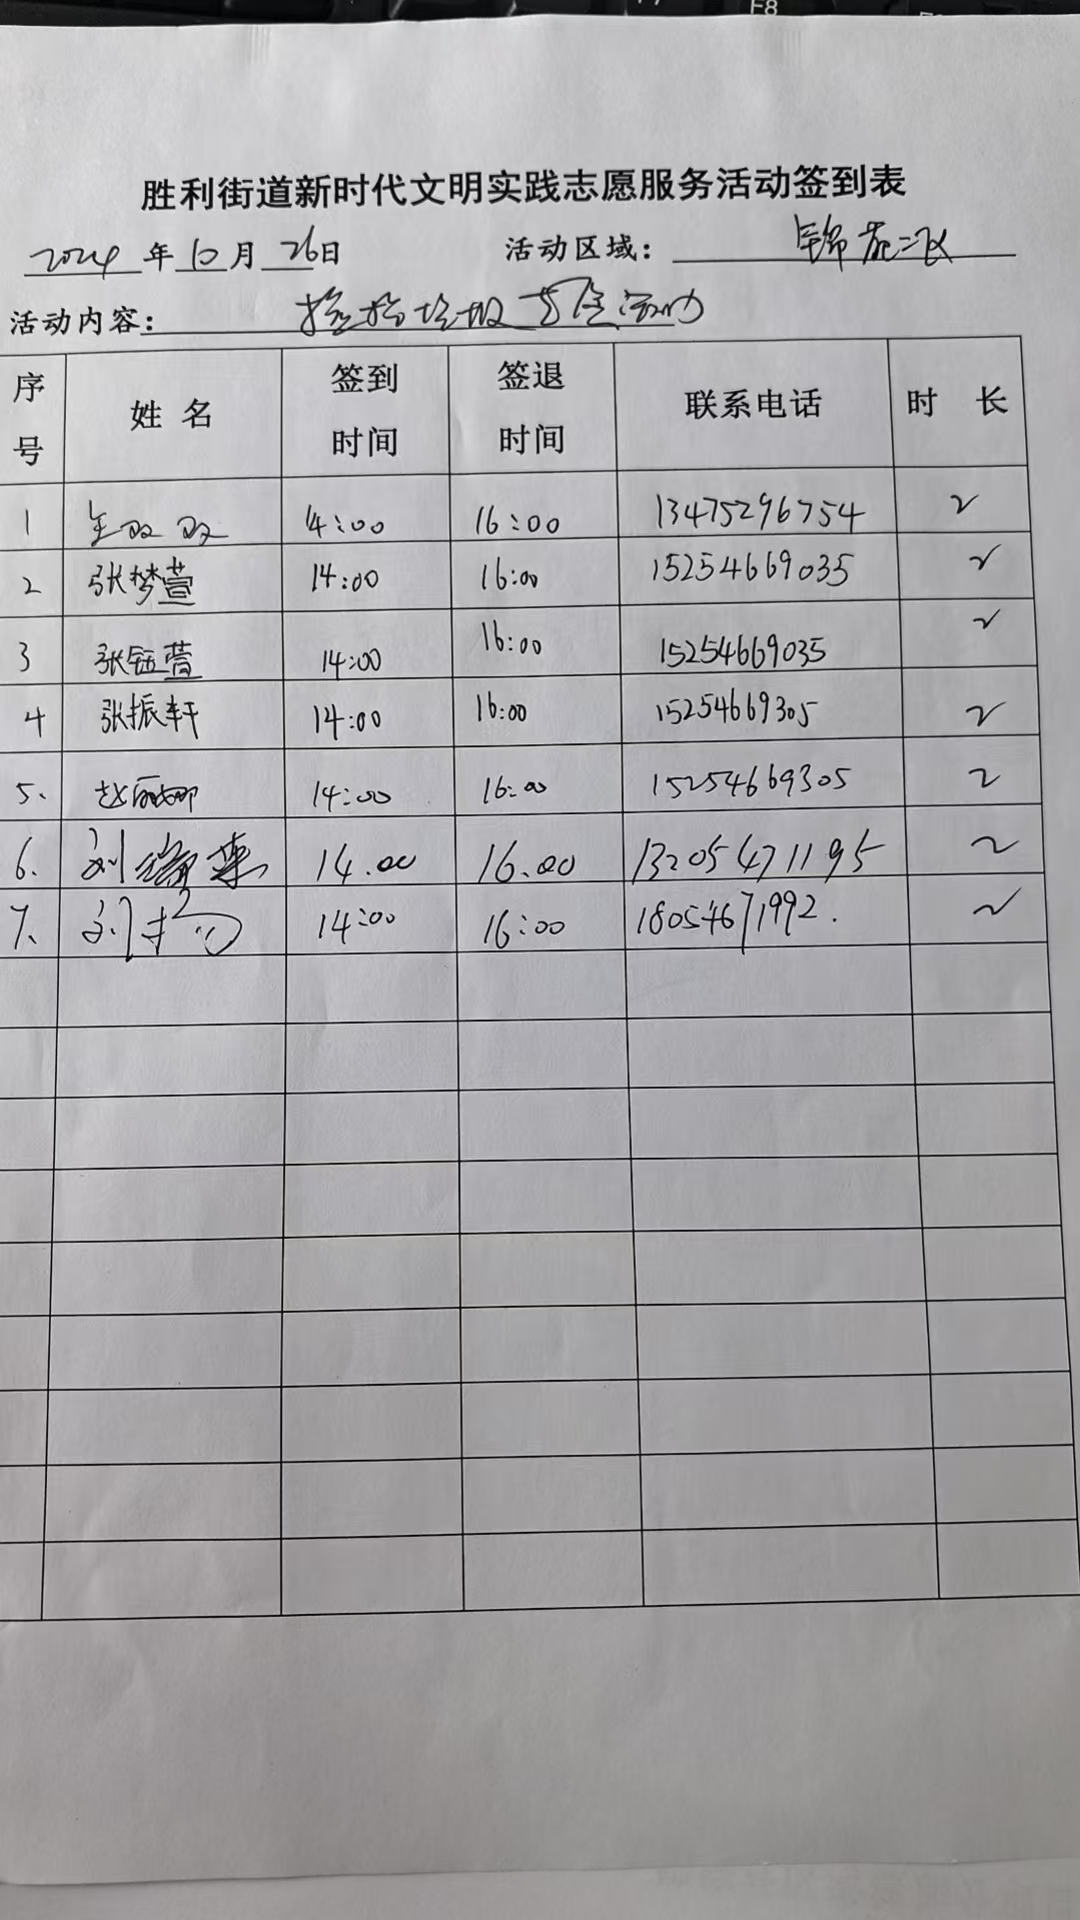 F8
胜利街道新时代文明实践志愿服务活动签到表
2024年10月26日 活动区域：锦苑二区
活动内容：捡拾垃圾 活动
序号 姓名 签到时间 签退时间 联系电话 时长
1 双双 14:00 16:00 13475296754 2
2 张梦萱 14:00 16:00 15254669035 2
3 张钰萱 14:00 16:00 15254669035 2
4 张振轩 14:00 16:00 15254669305 2
5、 赵丽娜 14:00 16:00 15254669305 2
6. 刘 14.00 16.00 13205471195 2
7、 刘扬 14:00 16:00 18054671992. 2